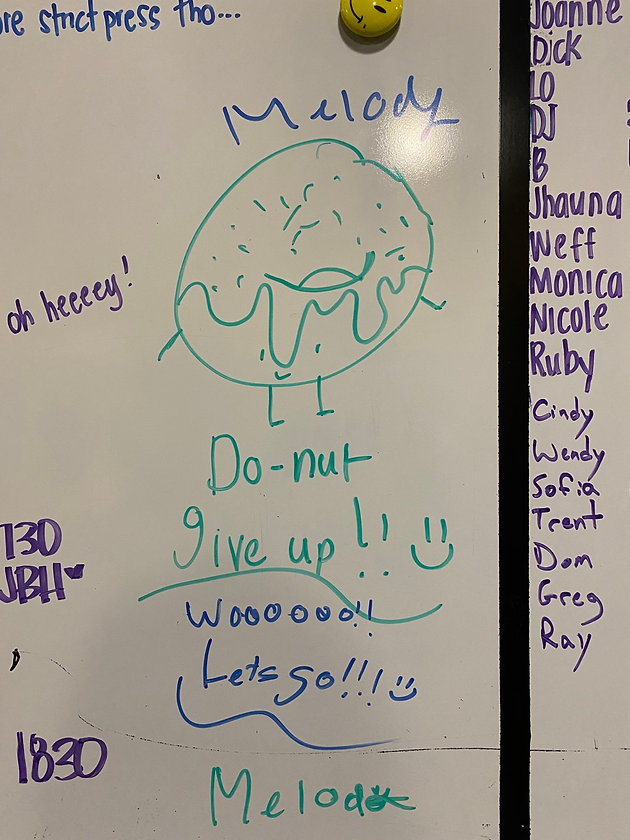 re strict press tho...
Melody
oh heeeey!
Do-nut
give up!!
730
JBH
Woooooo!!
Lets go!!!
1830
Joanne
Dick
LO
DJ
B
Jhauna
Weff
Monica
Nicole
Ruby
Cindy
Wendy
Sofia
Trent
Dom
Greg
Ray